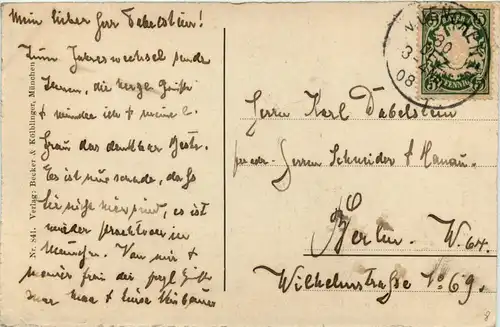 Mein lieber Herr Dabelstein!
Zum Jahreswechsel sende
Ihnen, die herzl. Grüße
meine l.
Frau das denkbar Beste.
Es ist nur schade, daß
Sie nicht hier sind, es ist
wieder prachtvoll in
München. Von mir +
meiner Frau die herzl. Grüße
Nr. 841. Verlag: Becker & Kölblinger, München
MÜNCHEN
30
3-4
08
5 PFENNIG 5
Herrn Karl Dabelstein
per adr. Herren Schneider & Hanau
Berlin. W. 64.
Wilhelmstraße No 69.